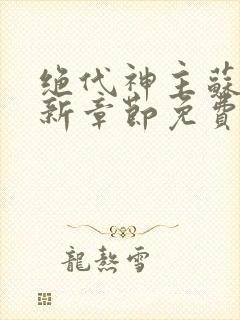 绝代神主蘇
新章節免費
龍熬雪